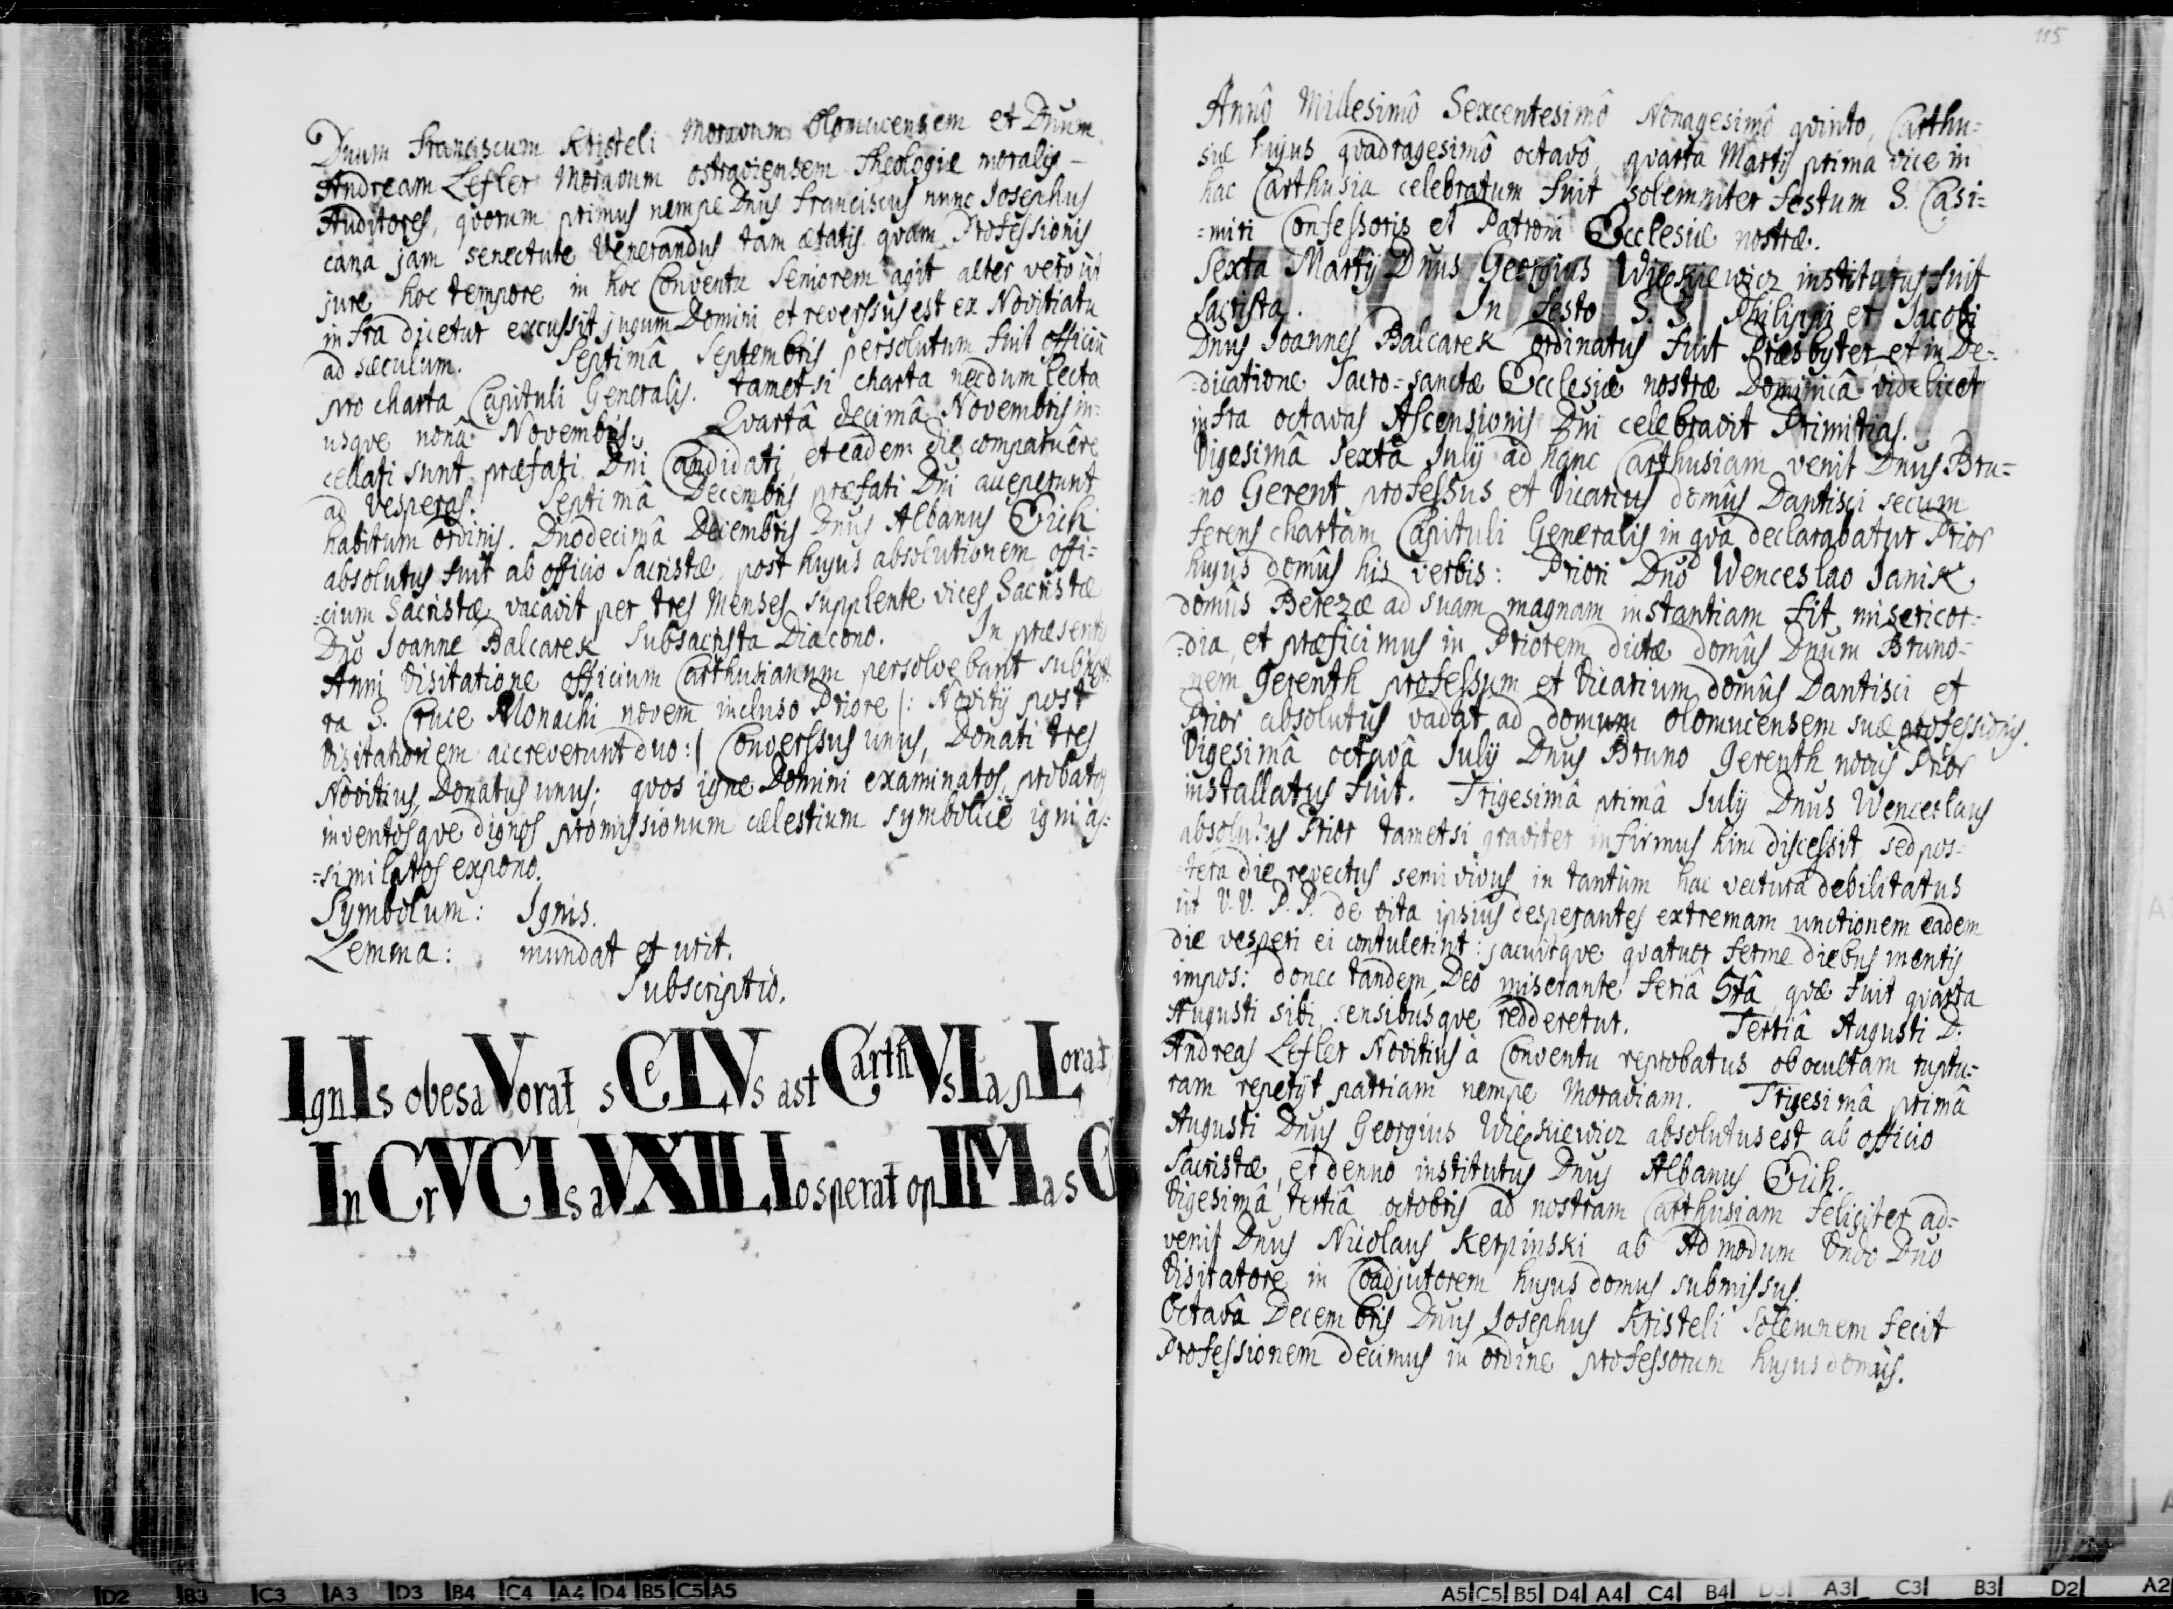 Dnum Franciscum Kristeli Moravum Olomucensem et Dnum
Andream Lefler Moravum ostraviensem Theologiæ moralis
Auditores, quorum primus nempe Dnus Franciscus nunc Josephus
cana jam senectute Venerandus tam ætatis quam Professionis
jure hoc tempore in hoc Conventu Seniorem agit alter vero ut
infra dicetur excussit jugum Domini et reverssus est ex Novitiatu
ad sæculum. Septimâ Septembris persolutum fuit officiũ
pro charta Capituli Generalis. tametsi charta necdum lecta
usque nonâ Novembris. Quartâ decimâ Novembris in-
cellati sunt præfati Dni Candidati et eâdem die comparuêre
ad Vesperas. Septimâ Decembris præfati Dni acceperunt
habitum ordinis. Duodecimâ Decembris Dnus Albanus Erich
absolutus fuit ab officio Sacristæ, post hujus absolutionem offi=
=cium Sacristæ vacavit per tres Menses supplente vices Sacristæ
Dno Joanne Balcarek Subsacrista Diacono. In præsentis
Anni Visitatione officium Carthusianum persolvebant sub
ra S. Cruce Monachi novem incluso Priore (: Novitij post
Visitationem accreverunt duo :) Converssus unus, Donati tres
Novitius Donatus unus; quos igne Domini examinatos, probatos
inventosque dignos promissionum cælestium symbolicè igni as=
=similatos expono.
Symbolum: Ignis.
Lemma: mundat et urit.
Subscriptio.
IgnIs obesa Vorat sCeLVs ast CarthVsIa pLorat,
In CrVCIs aVXILIo sperat opIMas
115
Annô Millesimô Sexcentesimô Nonagesimô quinto, Carthu=
siæ hujus quadragesimô octavô, quarta Martij prima vice in
hac Carthusia celebratum fuit solemniter festum S. Casi=
=miri Confessoris et Patroni Ecclesiæ nostræ.
Sexta Martij Dnus Georgius Więckiewicz institutus fuit
Sacrista. In festo S. S. Philippi et Jacobi
Dnus Joannes Balcarek ordinatus fuit Præsbyter, et in De=
=dicatione Sacro=sanctæ Ecclesiæ nostræ Dominicâ videlicet
infra octavas Ascensionis Dni celebravit Primitias.
Vigesimâ sextâ Julij ad hanc Carthusiam venit Dnus Bru=
=no Gerent professus et Vicarius domûs Dantisci secum
ferens chartam Capituli Generalis in qua declarabatur Prior
hujus domûs his verbis: Priori Dno Wenceslao Janik
domûs Berezæ ad suam magnam instantiam fit misericor=
=dia, et præficimus in Priorem dictæ domûs Dnum Bruno=
nem Gerenth professum et Vicarium domûs Dantisci et
Prior absolutus vadat ad domum olomucensem suæ professionis.
Vigesimâ octavâ Julij Dnus Bruno Gerenth novus Prior
installatus fuit. Trigesimâ primâ Julij Dnus Wenceslaus
absolutus Prior tametsi graviter infirmus hinc discessit, sed pos=
=tera die revectus semivivus in tantum hac vectura debilitatus
ut V. V. P. P. de vita ipsius desperantes extremam unctionem eadem
die vesperi ei contulerint: jacuitque quatuor ferme diebus mentis
impos: donec tandem Deo miserante feriâ 5tâ quæ fuit quarta
Augusti sibi sensibusque redderetur. Tertiâ Augusti D.
Andreas Lefler Novitius à Conventu reprobatus ob ocultam ruptu=
ram repetijt patriam nempe Moraviam. Trigesimâ primâ
Augusti Dnus Georgius Więckiewicz absolutus est ab officio
Sacristæ, et denuo institutus Dnus Albanus Erich.
Vigesimâ tertiâ octobris ad nostram Carthusiam feliciter ad=
venit Dnus Nicolaus Kerpinski ab Admodum Vndo Dno
Visitatore in Coadjutorem hujus domus submissus.
Octavâ Decembris Dnus Josephus Kristeli Solemnem fecit
Professionem decimus in ordine professorum hujus domûs.
D2 B3 C3 A3 D3 B4 C4 A4 D4 B5 C5 A5
A5 C5 B5 D4 A4 C4 B4 D3 A3 C3 B3 D2 A2